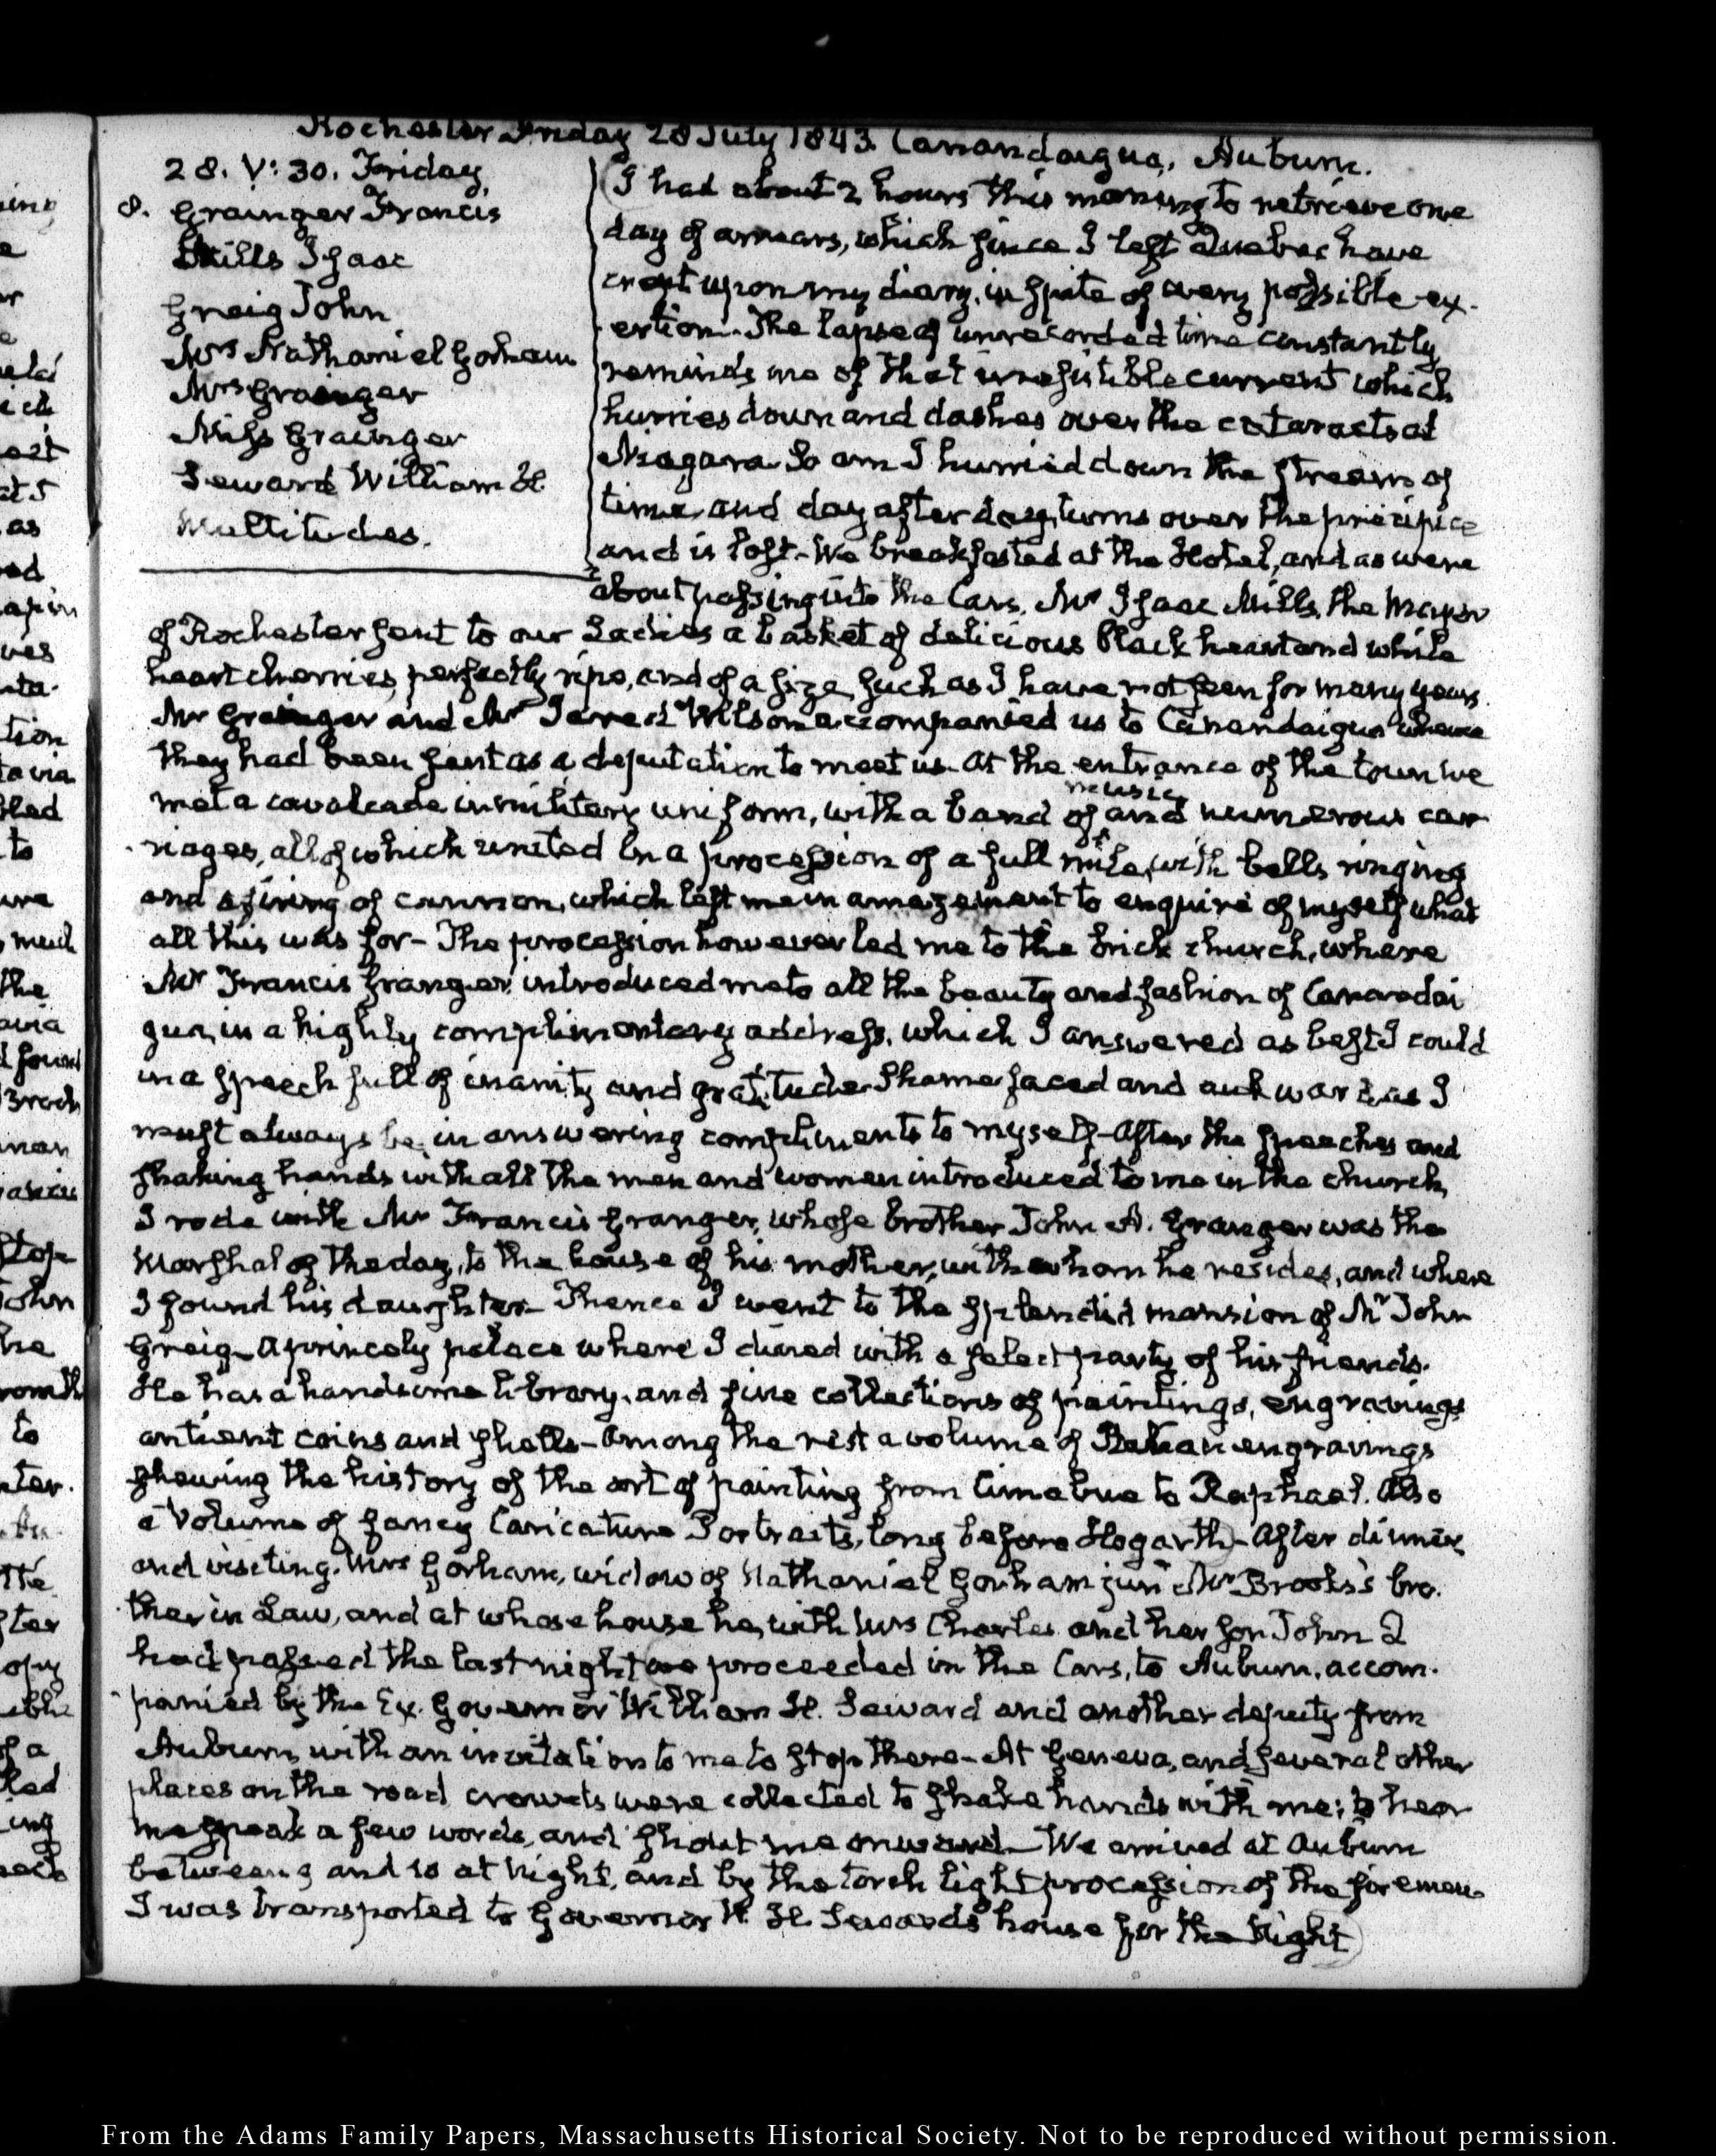 Rochester Friday 28 July 1843. Canandaigua, Auburn.
28. V: 30. Friday
8.
Grainger Francis
Mills Isaac
Greig John
Mrs Nathaniel Gorham
Mrs Grainger
Miss Grainger
Seward William H.
Multitudes.
I had about 2 hours this morning to retrieve one
day of arrears, which since I left Quebec have
crept upon my diary, in spite of every possible ex-
ertion. The lapse of unrecorded time constantly
reminds me of that irresistible current which
hurries down and dashes over the cataracts at
Niagara. So am I hurried down the stream of
time, and day after day, turns over the precipice
and is lost. We breakfasted at the Hotel, and as were
about passing into the Cars, Mr Isaac Mills, the Mayor
of Rochester sent to our Ladies a basket of delicious black heart and white
heart cherries perfectly ripe, and of a size such as I have not seen for many years.
Mr Grainger and Mr Jared Wilson accompanied us to Canandaigua whence
they had been sent as a deputation to meet us. At the entrance of the town we
met a cavalcade in military uniform, with a band of music and numerous car-
riages, all of which united in a procession of a full mile, with bells ringing
and a firing of cannon, which left me in amazement to enquire of myself what
all this was for- The procession however led me to the brick church, where
Mr Francis Granger introduced me to all the beauty and fashion of Canandai
gua, in a highly complimentary address, which I answered as best I could
in a speech full of inanity and gratitude. Shamefaced and aukward, as I
must always be, in answering compliments to myself- After the speeches and
shaking hands with all the men and women introduced to me in the church,
I rode with Mr Francis Granger, whose brother John A. Granger was the
Marshal of the day, to the house of his mother, with whom he resides, and where
I found his daughter- Thence I went to the splendid mansion of Mr John
Greig- a princely palace where I dined with a select party of his friends.
He has a handsome library, and fine collections of paintings, engravings
antient coins and shells- Among the rest a volume of Italian engravings
shewing the history of the art of painting from Cimabue to Raphael. Also
a Volume of fancy Caricature Portraits, long before Hogarth- After dinner
and visiting Mrs Gorham, widow of Nathaniel Gorham junr Mr Brooks's bro-
ther in Law, and at whose house he, with Mrs Charles and her son John Q
had passed the last night we proceeded in the Cars, to Auburn, accom-
panied by the Ex. Governor William H. Seward and another deputy from
Auburn, with an invitation to me to stop there- At Geneva, and several other
places on the road crowds were collected to shake hands with me; to hear
me speak a few words, and shout me onward. We arrived at Auburn
between 9 and 10 at Night, and by the torch light procession of the firemen
I was transported to Governor W. H. Sewards house for the Night
From the Adams Family Papers, Massachusetts Historical Society. Not to be reproduced without permission.